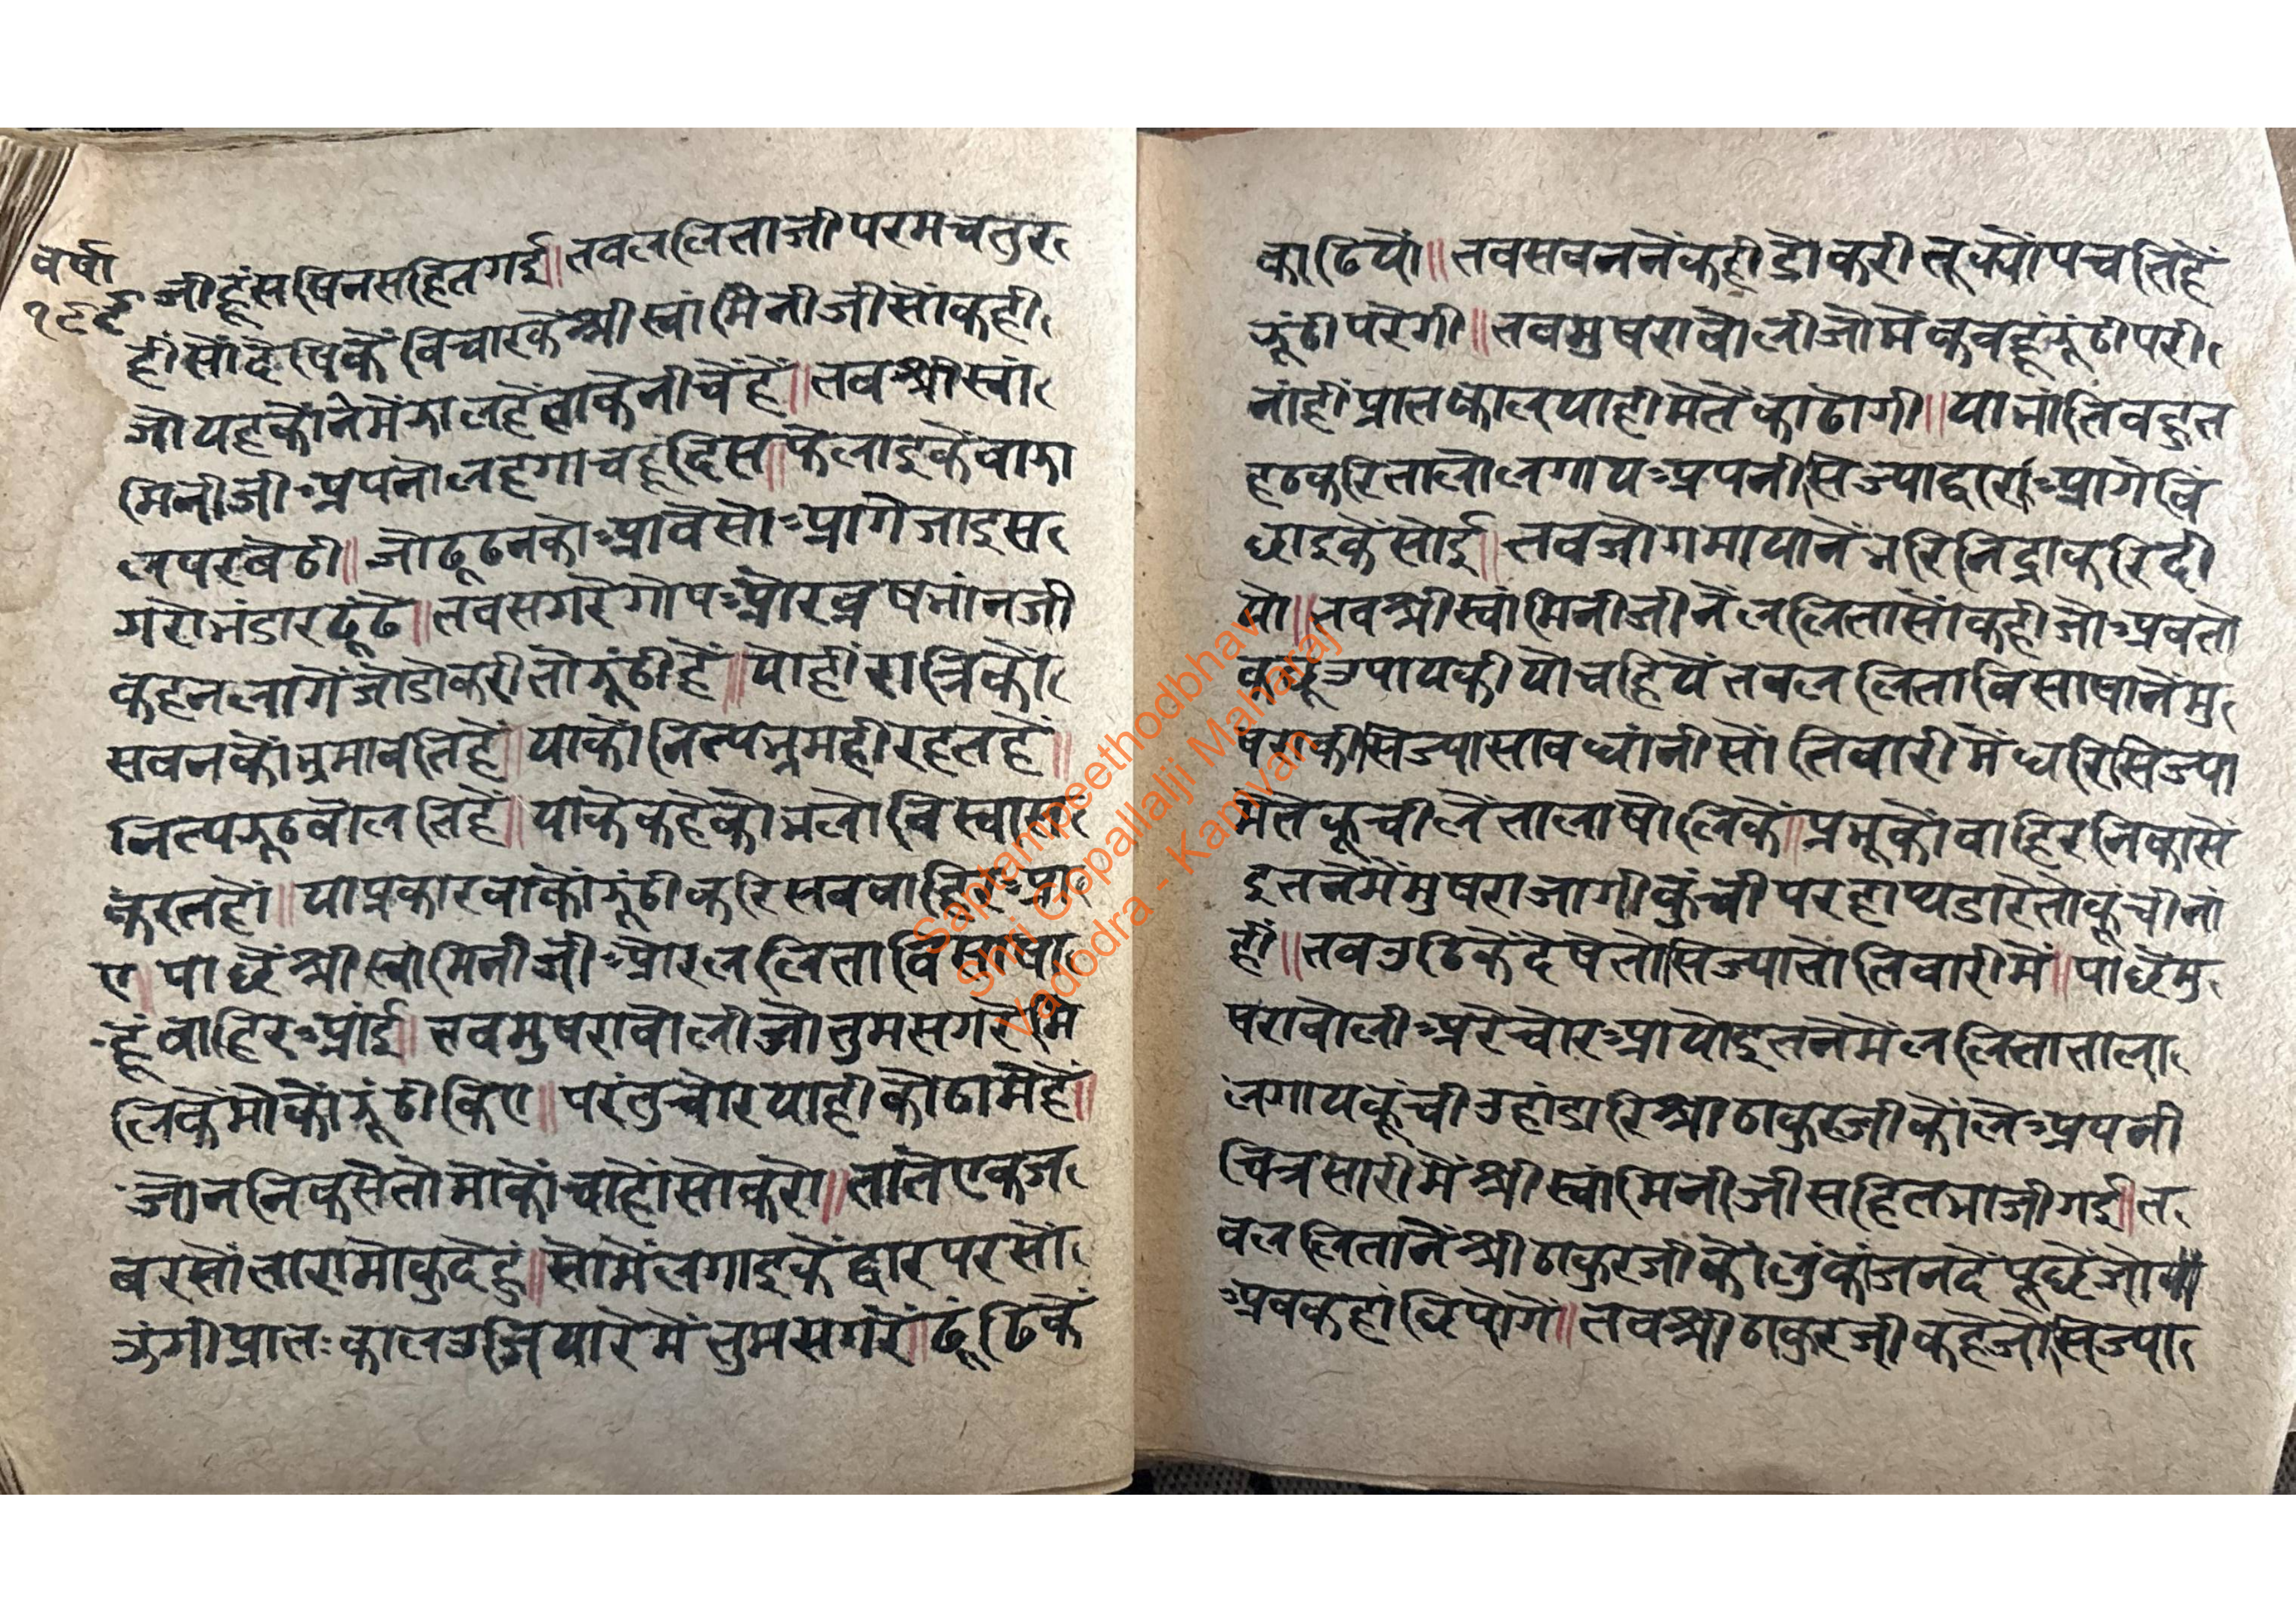 वर्षा
१९९
जीहूंसषिनसहितगई॥तवललिताजीपरमचतुर
हीसोंदेषिकैंविचारकेंश्रीस्वांमिनीजीसोंकही
जोयहकोंनेमेंगालहैंताकेनीचेंहैं॥तवश्रीस्वां
मिनीजीअपनोलहगाचहूदिस॥फेलाइकेंवागा
लपरबेठी॥जोढूढनकोआवेसोआगेजाइस
गरोभंडारढूंढे॥तवसगरेगोपओरव्रषभांनजी
कहनलागेंजोडोकरीतोझूंठीहें॥योहींरात्रिकों
सवनकोंभ्रमावतिहैं॥याकोंनित्यभ्रमहीरहतहें॥
नित्यझूठवोलतिहें॥याकेकहेकोभलोविस्वास
करतहों॥याप्रकारवाकोंझूंठीकरिसववाहिरआ
ए॥पाछेंश्रीस्वांमिनीजीओरललिताविसाषा
हूंवाहिरआंई॥तवमुषरावोलीजोतुमसगरेमि
लिकेंमोकोंझूंठीकिए॥परंतुचोरयाहीकोठामेंहें॥
जोननिकसेतोमोकोंचाहोंसोकरो॥तातेएकज
बरसोतारामोकुदेहुं॥सोमेंलगाइकेंद्वारपरसों
ऊंगीप्रातःकालउजियारेमेंतुमसगरें॥ढूंढिकें
काढियों॥तवसवननेंकहीडोकरीतूक्योंपचतिहें
झूंठीपरेगी॥तवमुषरावोलीजोमेंकवहूंझूंठीपरी
नांहींप्रातष्कालयाहीमेतेंकाढोगी॥याभांतिवहुत
हठकरितालोलगायअपनीसिज्याद्वाराआगेवि
छाइकेंसोई॥तवजोगमायानेंभरिनिद्राकरिदी
यो॥तवश्रीस्वांमिनीजीनेंललितासोंकहीजोअवतो
कछूउपायकीयोचहियेंतवललिताविसाषानेंमु
षराकीसिज्यासावधांनीसोंतिवारीमेंधरिसिज्या
मेतेकूचीलेंतालाषोलिकें॥प्रभूकोंवाहिरनिकासें
इतनेंमेंमुषराजागीकुंचीपरहाथडारेतोकूंचीनां
हीं॥तवउठिकेंदेषेतोसिज्यातोतिवारीमें॥पाछेंमु
षरावोलीअरेचोरआयोइतनेमेंललिताताला
लगायकूंचीउहांडारिश्रीठाकुरजीकोंलेअपनी
चित्रसारीमेंश्रीस्वांमिनीजीसहितभाजीगई॥त
वललितानेंश्रीठाकुरजीकोंलुंकांजनदेंपूछेंजो
अवकहांछिपोगें॥तवश्रीठाकुरजीकहेजोसिज्या
Saptampeethodbhav
Shri Gopallalji Maharaj
Vadodra - Kamvan